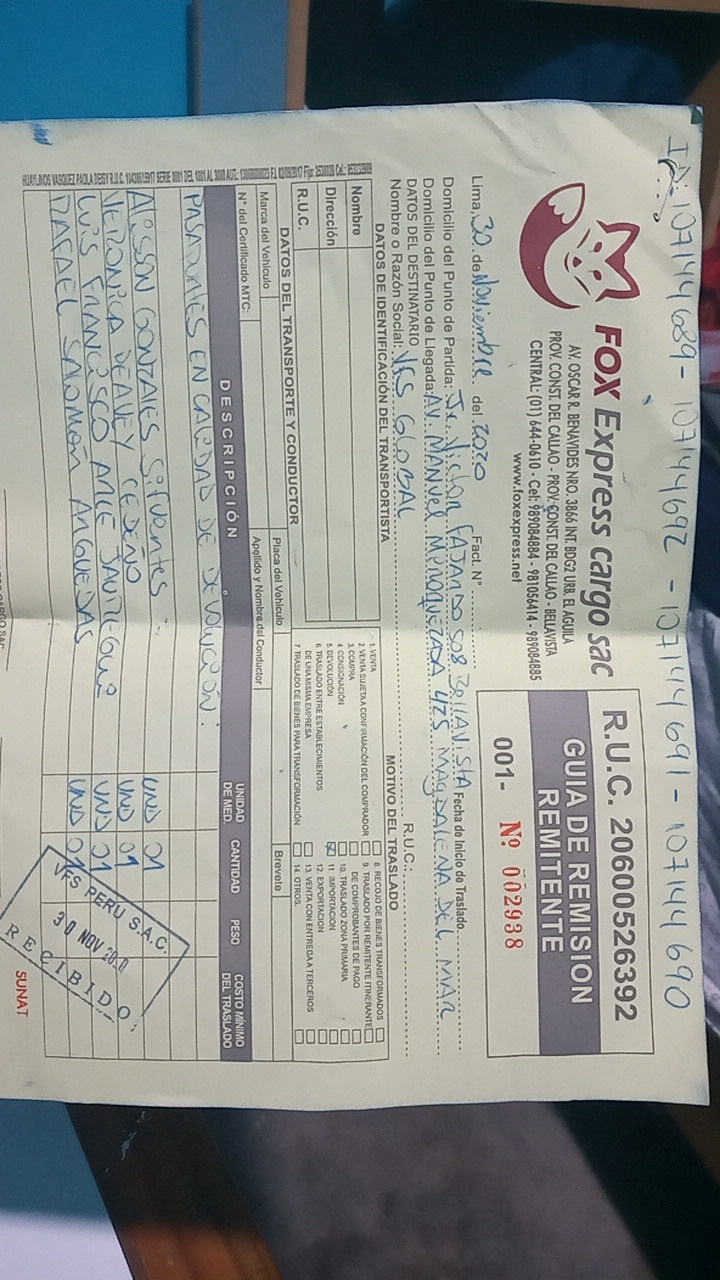 IN: 107144689 - 107144692 - 107144691 - 107144690
FOX Express cargo sac
AV. OSCAR R. BENAVIDES NRO. 3866 INT. BDG2 URB. EL AGUILA
PROV. CONST. DEL CALLAO - PROV. CONST. DEL CALLAO - BELLAVISTA
CENTRAL: (01) 644-0610 - Cel: 989084884 - 981056414 - 989084885
www.foxexpress.net
R.U.C. 20600526392
GUIA DE REMISION
REMITENTE
001- Nº 002938
Lima, 30 de Noviembre del 2020 Fact. N°
Domicilio del Punto de Partida: Jr. Victor FAJARDO 508 BellAVISTA Fecha de Inicio de Traslado
Domicilio del Punto de Llegada: AV. MANUEL 425 MAGDALENA DEL MAR
DATOS DEL DESTINATARIO
Nombre o Razón Social: VFS GLOBAL R.U.C.:
DATOS DE IDENTIFICACIÓN DEL TRANSPORTISTA
Nombre
Dirección
R.U.C.
MOTIVO DEL TRASLADO
1. VENTA
2. VENTA SUJETA A CONFIRMACIÓN DEL COMPRADOR
3. COMPRA
4. CONSIGNACIÓN
5. DEVOLUCIÓN
6. TRASLADO ENTRE ESTABLECIMIENTOS
DE UNA MISMA EMPRESA
7. TRASLADO DE BIENES PARA TRANSFORMACIÓN
8. RECOJO DE BIENES TRANSFORMADOS
9. TRASLADO POR REMITENTE ITINERANTE
DE COMPROBANTES DE PAGO
10. TRASLADO ZONA PRIMARIA
11. IMPORTACIÓN
12. EXPORTACIÓN
13. VENTA CON ENTREGA A TERCEROS
14. OTROS
DATOS DEL TRANSPORTE Y CONDUCTOR
Marca del Vehículo Placa del Vehículo
N° del Certificado MTC: Apellido y Nombre del Conductor Brevete
DESCRIPCIÓN UNIDAD DE MED. CANTIDAD PESO COSTO MÍNIMO DEL TRASLADO
PASAPORTES EN CALIDAD DE DEVOLUCIÓN:
ALISSON GONZALES SIFUENTES UNO 01
VERONICA CEDEÑO UNO 01
LUIS FRANCISCO ARCE JAUREGUI UNO 01
RAFAEL SALOMÓN ANGUEDAS UNO 01
VFS PERU S.A.C.
30 NOV 2020
RECIBIDO
SUNAT